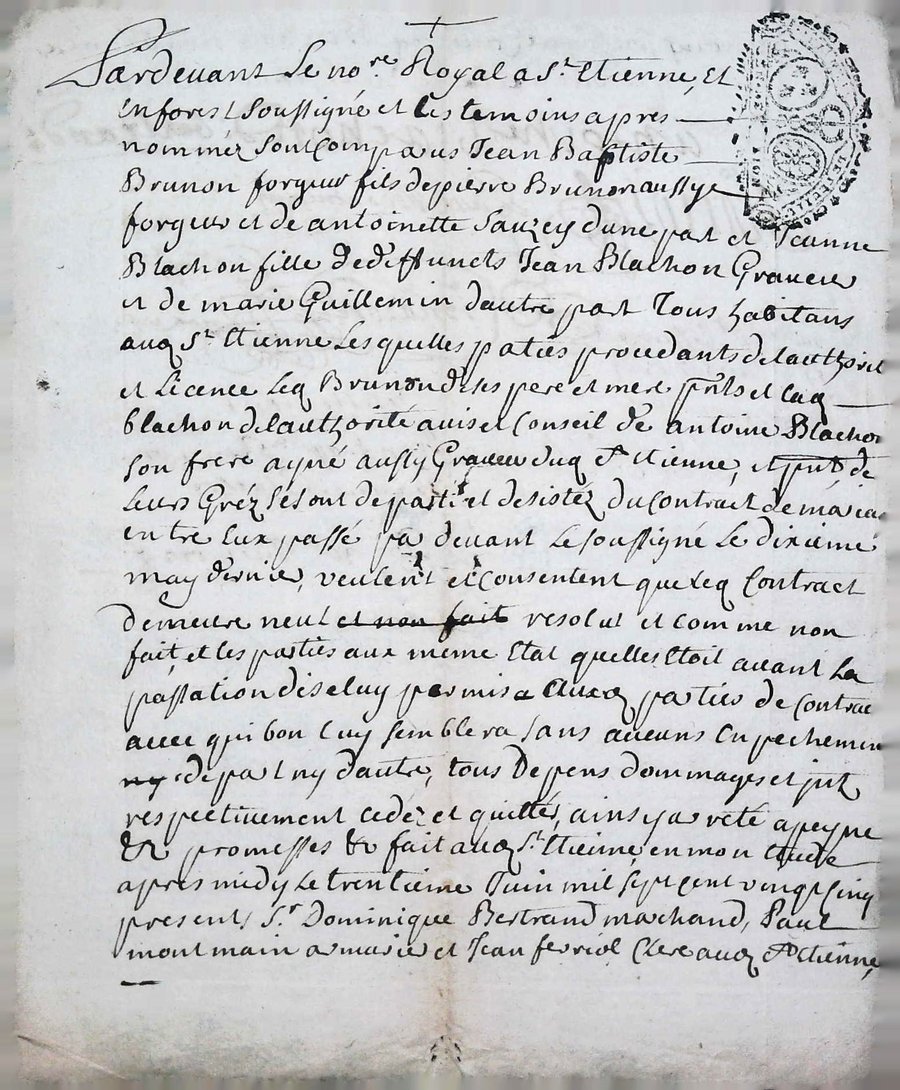 Pardevant Le no.re Royal a St Etienne, Et
En forest soussigné et Les temoins apres
nommez sont Comparus Jean Baptiste
Brunon forgeur fils de pierre Brunon aussy
forgeur et de antoinette Sauzey dune part et Jeanne
Blachon fille de deffuncts Jean Blachon Graveur
et de marie Guillemin dautre part Tous habitans
aud St Etienne Lesquelles paties procedants de lauthorité
et Licence Led Brunon de ses pere et mere pnts et Lad
blachon de lauthorité avis et Conseil de antoine Blachon
son frere ayné aussy Graveur dud St Etienne, et pnt de
Leurs Gréz se sont departi et desistéz du Contract de mariag
entre Eux passé pa devant Le soussigné Le dixieme
may dernier, veulent et Consentent que Led Contract
demeure neul et non fait resolut et comme non
fait, et les parties aux méme Etat quelles Etoit avant La
passation diseluy permis a Auxd parties de Contrac
avec qui bon Luy semblera sans aucuns Enpechemen
ny de pa t ny dautre, tous Depens dommages et jnt
respectivement cedez et quittés, ainsy areté a peyne
&a promesses &a fait aud St Etienne, en mon Etude
apres midy Le trentieme Juin mil sept cent vingt Cinq
present, Sr Dominique Bertrand marchand, Paul
montmain armurier et Jean ferriol Clerc aud St Etienne,